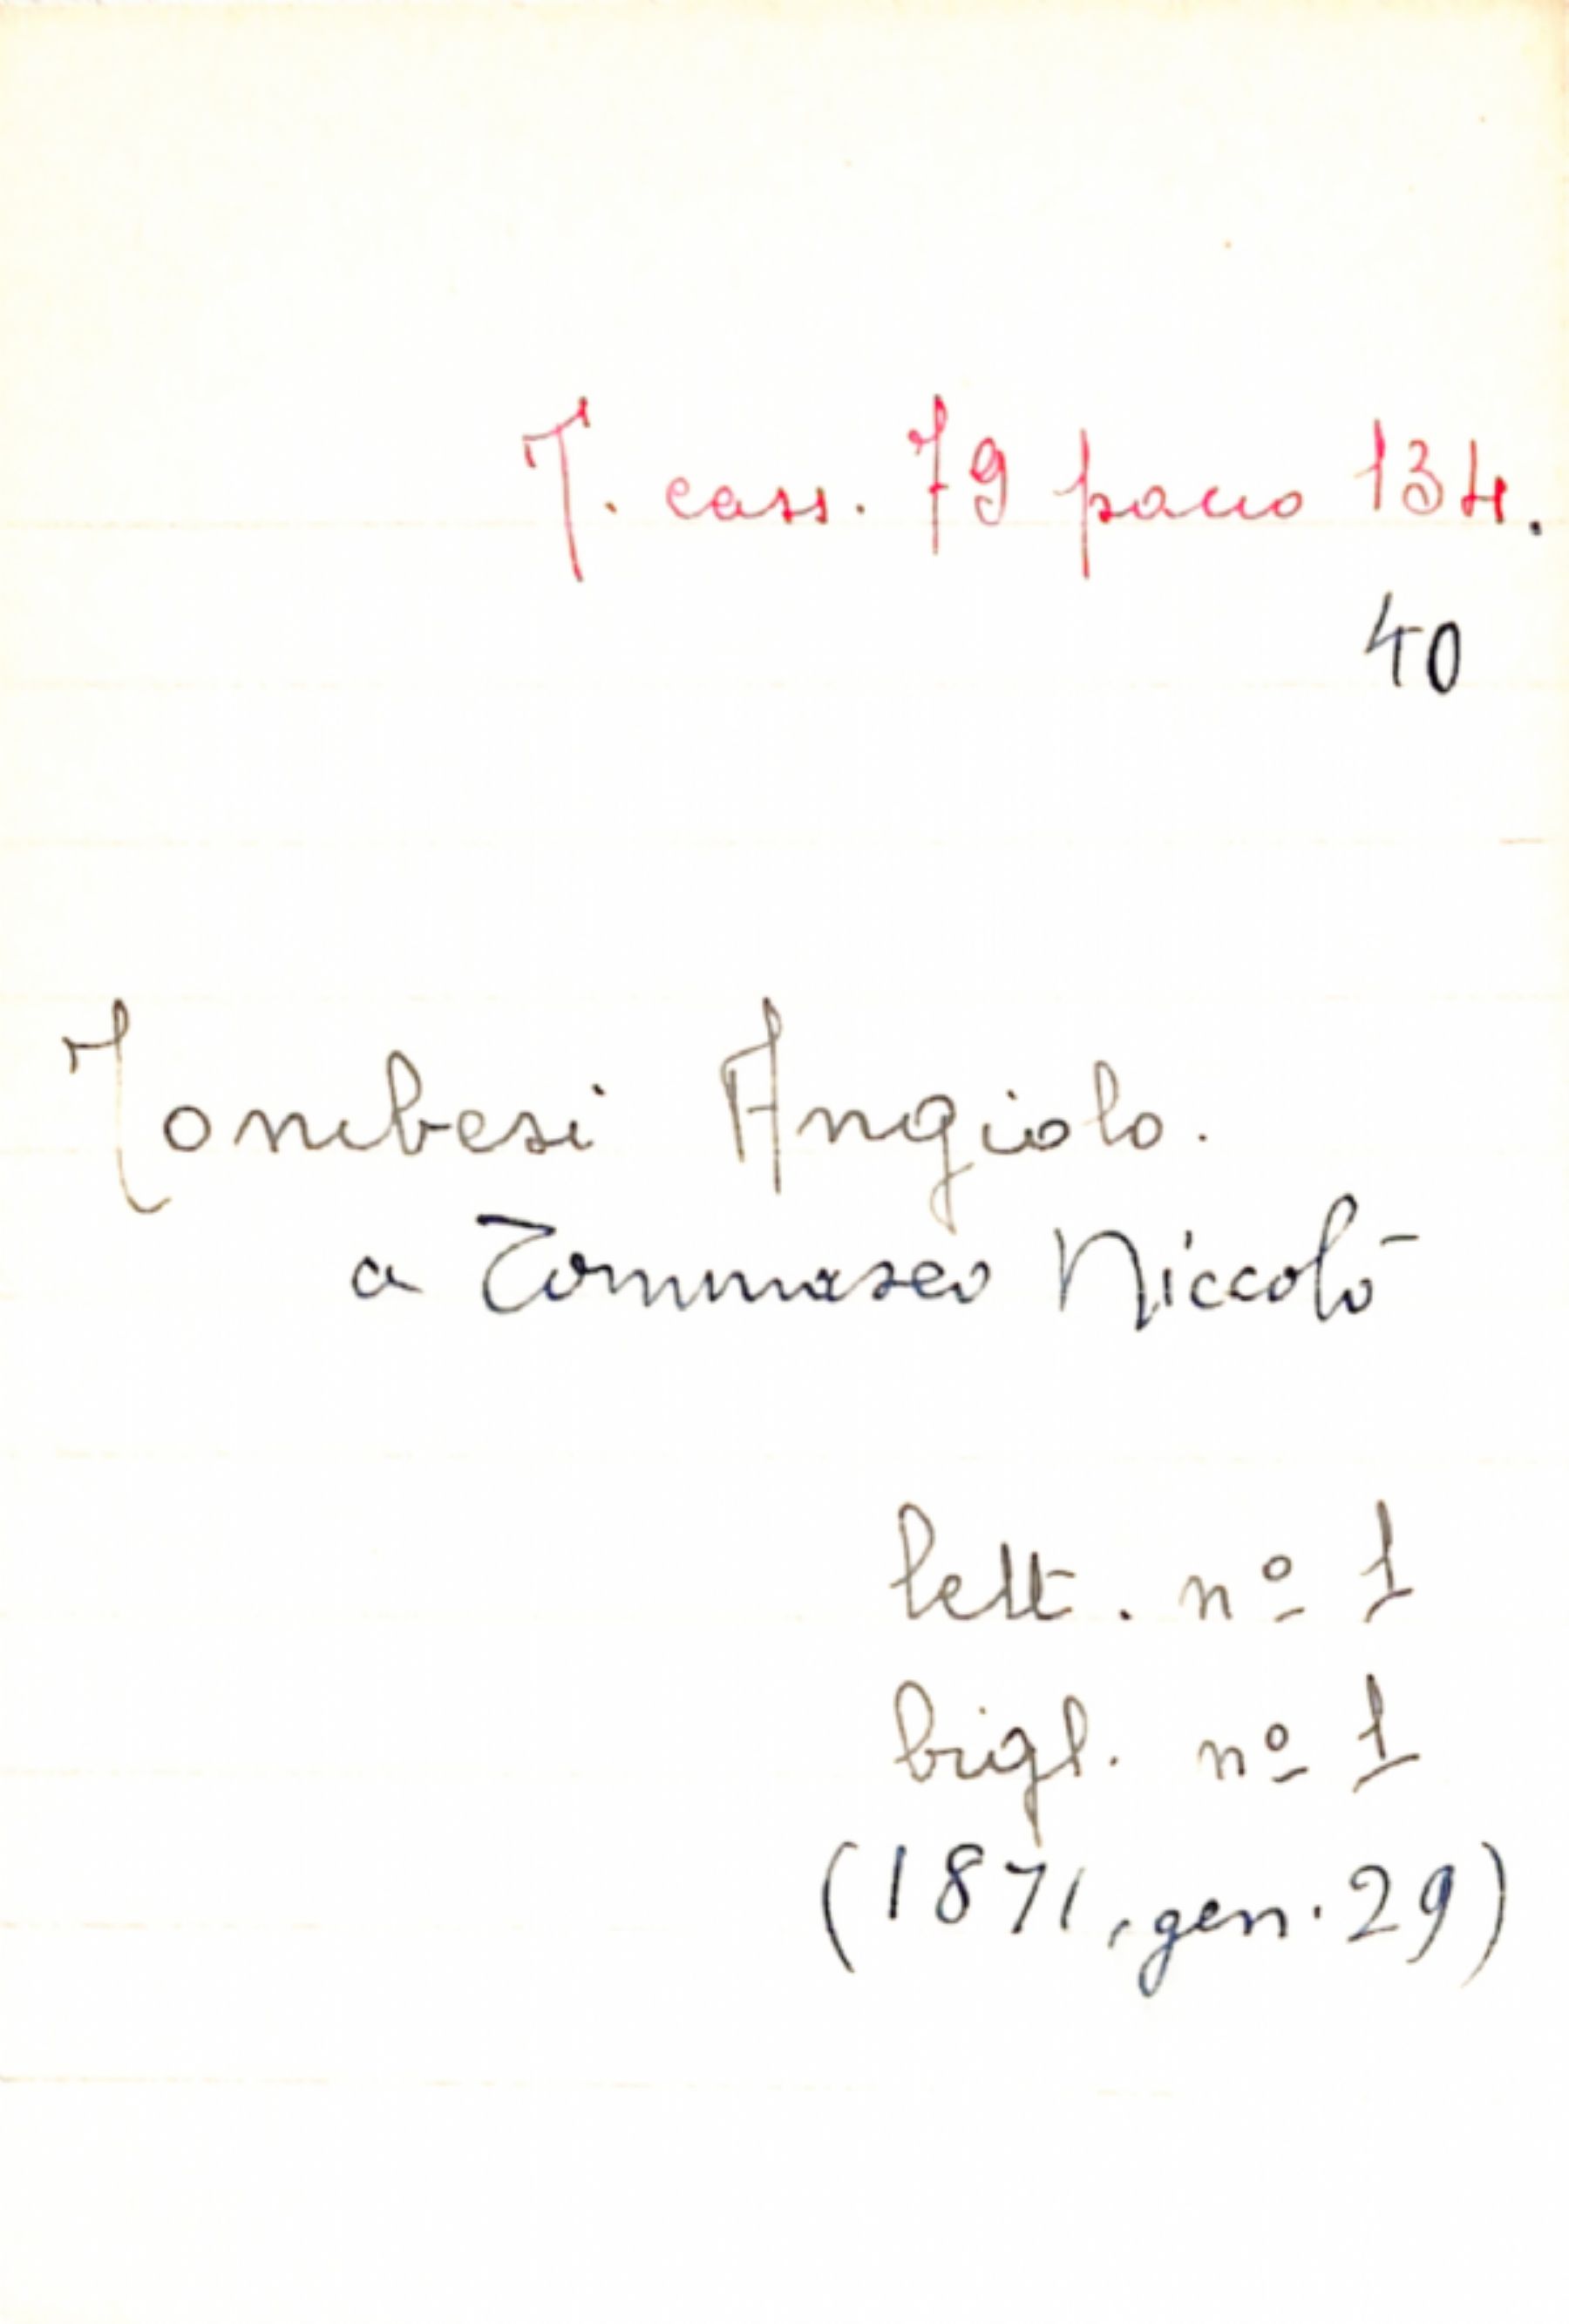 T. cass. 79 pacco 134.
40
Tombesi Angiolo.
a Tommaseo Niccolò
lett. nº 1
bigl. nº 1
(1871, gen. 29)